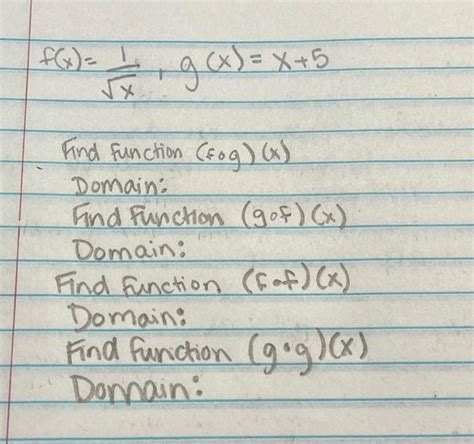 f(x)= 1/√x , g(x) = x+5
Find function (f∘g)(x)
Domain:
Find Function (g∘f)(x)
Domain:
Find function (f∘f)(x)
Domain:
Find function (g∘g)(x)
Domain: